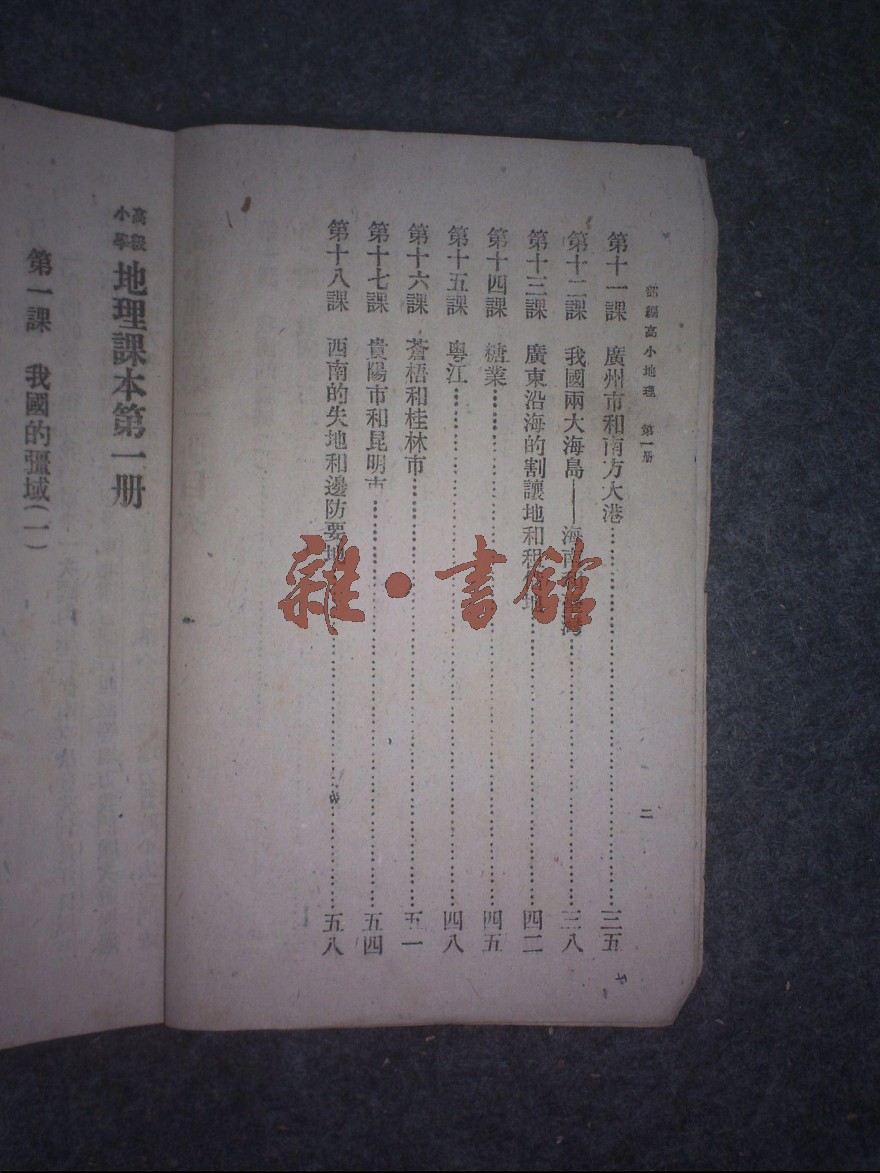 部編高小地理 第一册
二
第十一課 廣州市和南方大港……三五
第十二課 我國兩大海島——海南和　灣……三八
第十三課 廣東沿海的割讓地和租　地……四二
第十四課 糖業……四五
第十五課 粵江……四八
第十六課 蒼梧和桂林市……五一
第十七課 貴陽市和昆明市……五四
第十八課 西南的失地和邊防要地……五八
高級小學 地理課本第一册
第一課 我國的疆域(一)
雜·書館